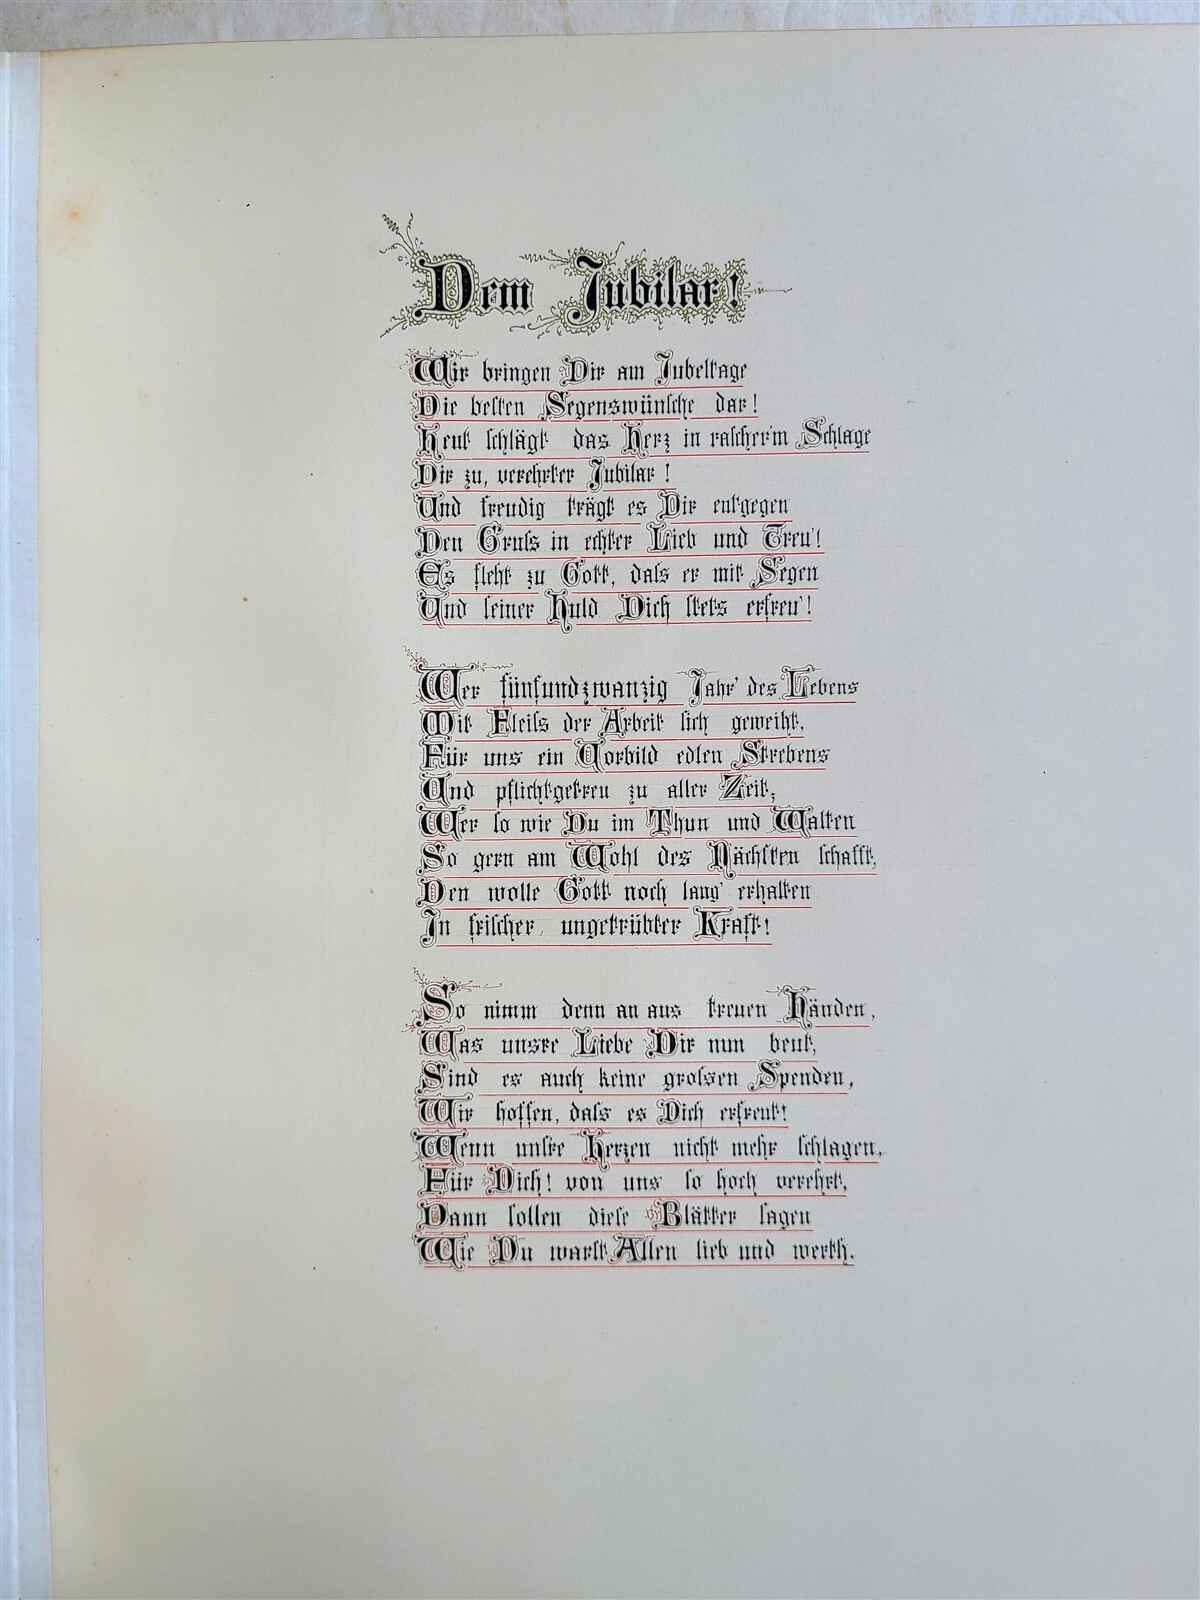 Dem Jubilar!
Wir bringen Dir am Jubeltage
Die besten Segenswünsche dar!
Heut schlägt das Herz in rascher'm Schlage
Dir zu, verehrter Jubilar!
Und freudig trägt es Dir entgegen
Den Gruss in echter Lieb und Treu'!
Es fleht zu Gott, dass er mit Segen
Und seiner Huld Dich stets erfreu'!
Wer fünfundzwanzig Jahr' des Lebens
Mit Fleiss der Arbeit sich geweiht,
Für uns ein Vorbild edlen Strebens
Und pflichtgetreu zu aller Zeit;
Wer so wie Du im Thun und Walten
So gern am Wohl des Nächsten schafft,
Den wolle Gott noch lang' erhalten
In frischer, ungetrübter Kraft!
So nimm denn an aus treuen Händen,
Was unsre Liebe Dir nun beut,
Sind es auch keine grossen Spenden,
Wir hoffen, dass es Dich erfreut!
Wenn unsre Herzen nicht mehr schlagen,
Für Dich! von uns so hoch verehrt,
Dann sollen diese Blätter sagen
Wie Du warst Allen lieb und werth.